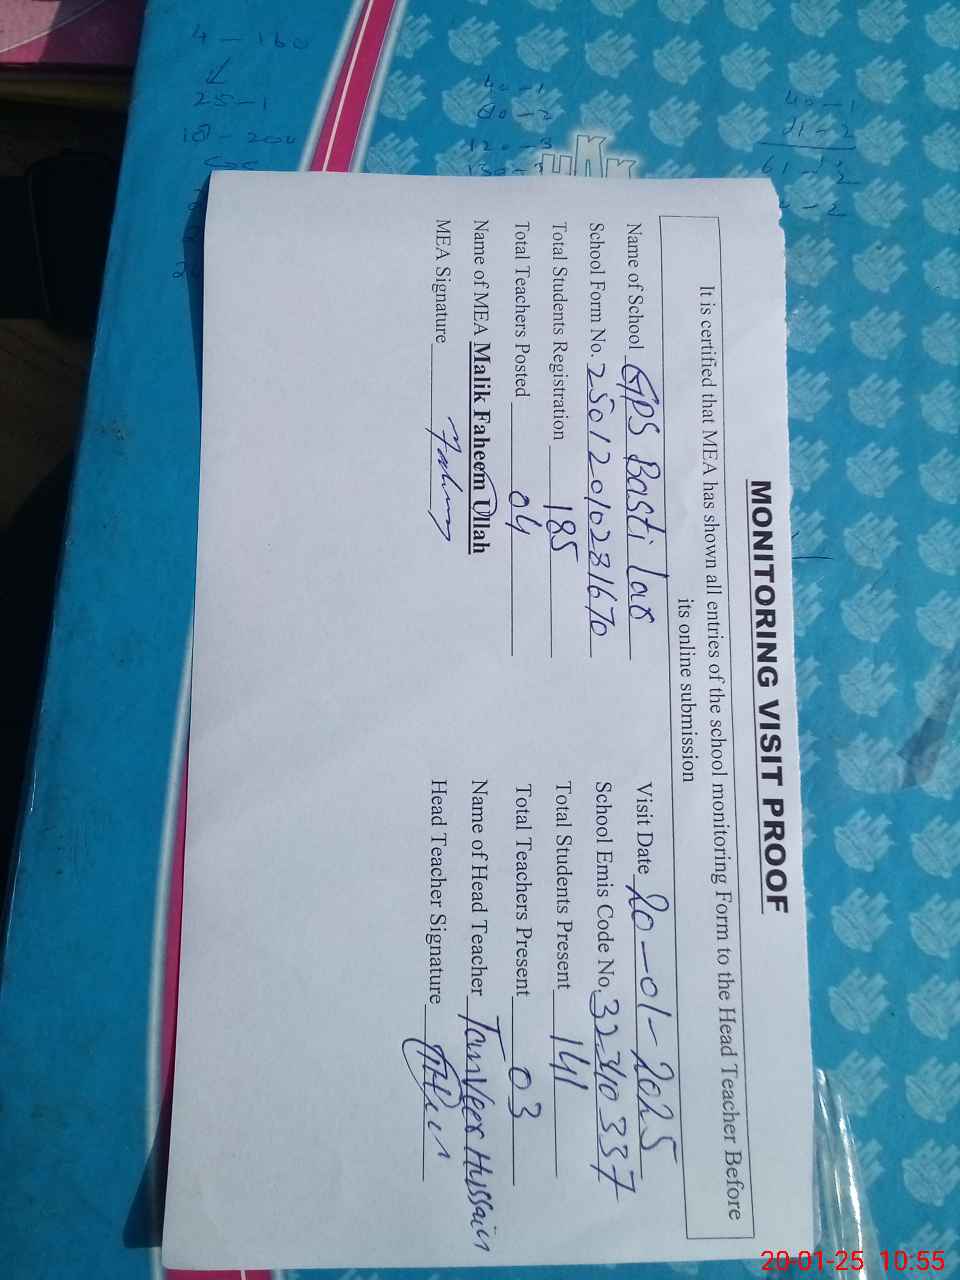 MONITORING VISIT PROOF
It is certified that MEA has shown all entries of the school monitoring Form to the Head Teacher Before
its online submission
Name of School GPS Basti lar Visit Date 20-01-2025
School Form No. 25012010281670 School Emis Code No. 32310337
Total Students Registration 185 Total Students Present 141
Total Teachers Posted 04 Total Teachers Present 03
Name of MEA Malik Faheem Ullah Name of Head Teacher Tanveer Hussain
MEA Signature Head Teacher Signature
4 - 160
25-1
40-1
80-2
120-3
40-1
61-2
20-01-25 10:55